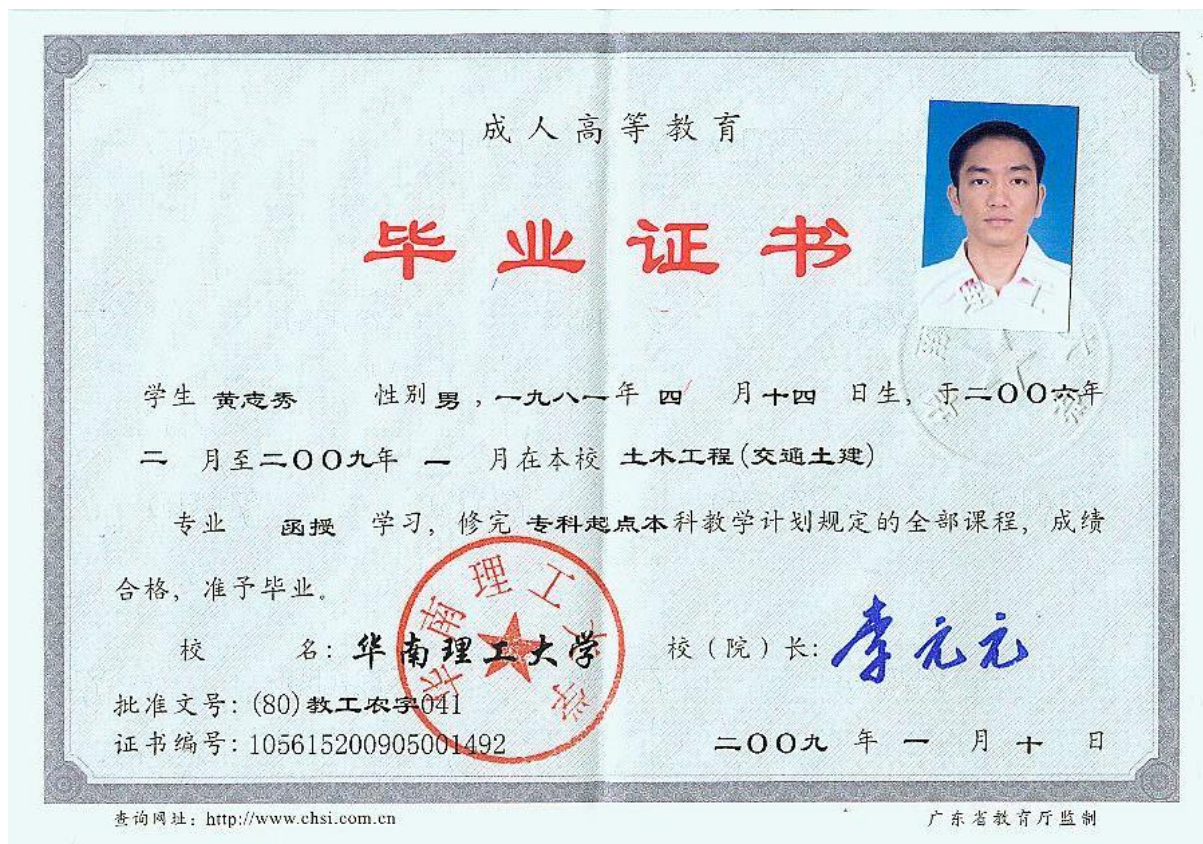 成人高等教育
毕业证书
学生 黄志秀 性别 男，一九八一年 四 月十四 日生，于二〇〇六年
二 月至二〇〇九年 一 月在本校 土木工程(交通土建)
专业 函授 学习，修完 专科起点本科教学计划规定的全部课程，成绩
合格，准予毕业。
校 名：华南理工大学 校（院）长：李元元
华南理工大学
批准文号：(80)教工农字041
证书编号：105615200905001492 二〇〇九 年 一 月 十 日
查询网址：http://www.chsi.com.cn 广东省教育厅监制